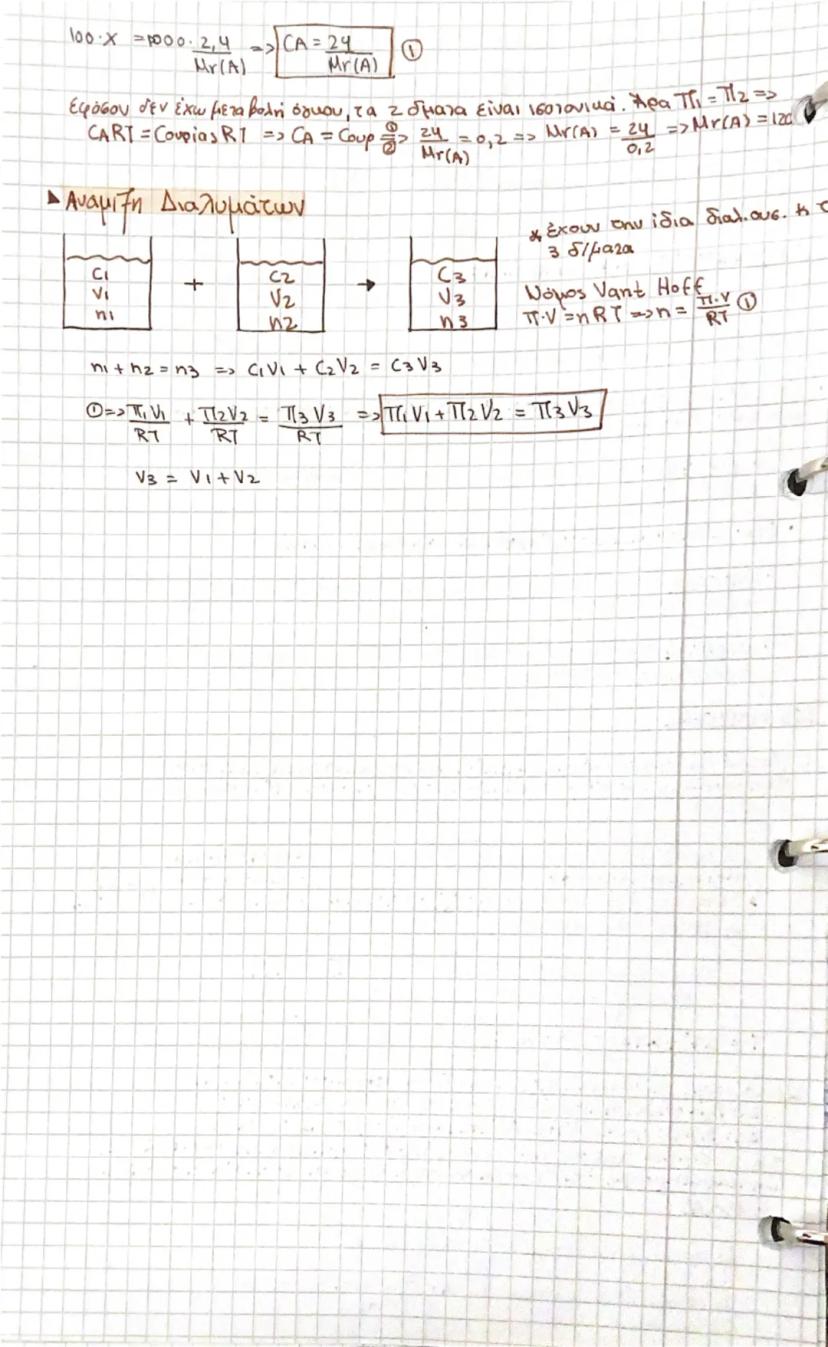 100·x = 1000·2,4/Mr(A) => CA = 24/Mr(A) ①
Εφόσον δεν έχω μεταβολή όγκου, τα 2 δ/ματα είναι ισοτονικά. Άρα Π1 = Π2 =>
CART = Cουρίας RT => CA = Cουρ ①②=> 24/Mr(A) = 0,2 => Mr(A) = 24/0,2 => Mr(A) = 120
▸ Ανάμιξη Διαλυμάτων
* έχουν την ίδια διαλ. ουσ. κ
3 δ/ματα
C1 + C2 → C3
V1 V2 V3
n1 n2 n3
Νόμος Vant Hoff
π·V = nRT => n = π·V/RT ①
n1 + n2 = n3 => C1V1 + C2V2 = C3V3
① => Π1V1/RT + Π2V2/RT = Π3V3/RT => Π1V1 + Π2V2 = Π3V3
V3 = V1 + V2